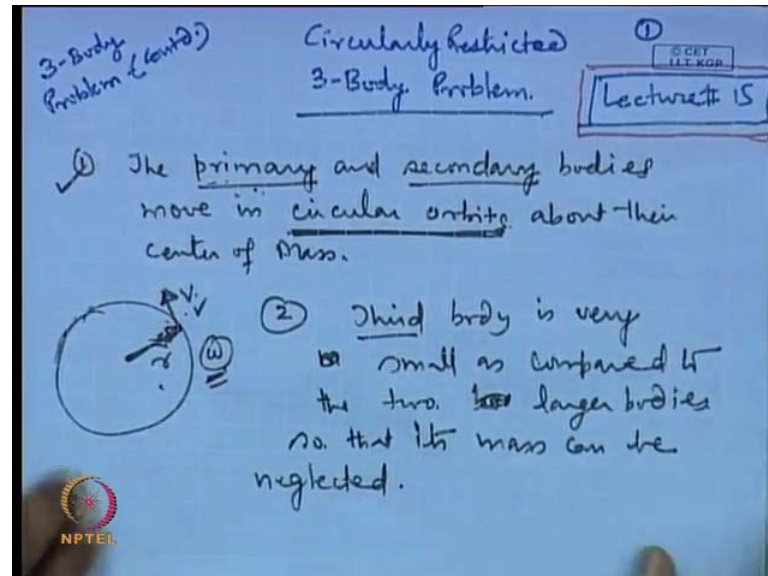 3-Body
Problem (contd.)
Circularly Restricted
3-Body Problem.
1
© CET
I.I.T. KGP
Lecture # 15
1 The primary and secondary bodies
move in circular orbits about their
center of Mass.
V
r
ω
2 Third body is very
small as compared to
the two larger bodies
so that its mass can be
neglected.
NPTEL